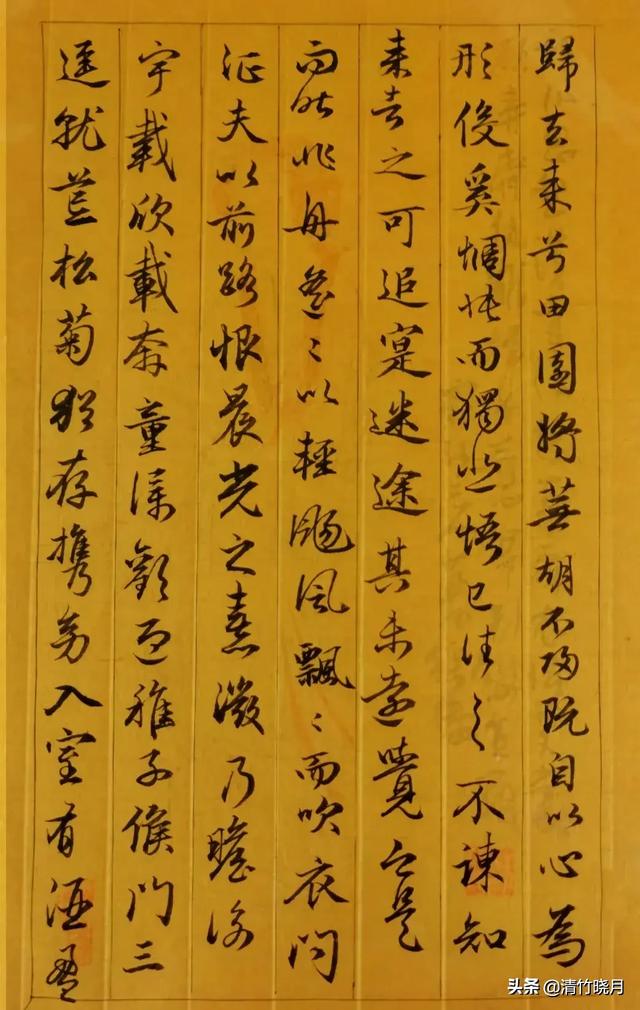 歸去来兮田園將蕪胡不歸既自以心為
形役奚惆悵而獨悲悟已往之不諫知
来者之可追寔迷途其未遠覺今是
而昨非舟遙〻以輕颺風飄〻而吹衣問
征夫以前路恨晨光之熹微乃瞻衡
宇載欣載奔童僕歡迎稚子候門三
逕就荒松菊猶存攜幼入室有酒盈
头条 @清竹晓月